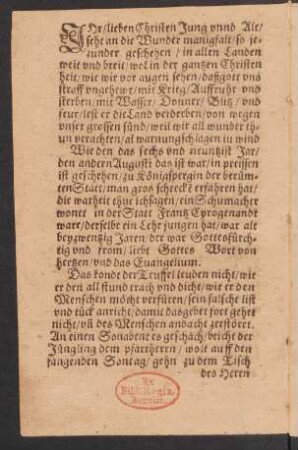 IHr/ lieben Christen Jung vnnd Alt/
seht an die Wunder manigfalt/ so je-
zunder geschehen/ in allen Landen
weit vnd breit/ wol in der gantzen Christen
heit/ wie wir vor augen sehen/ daß gott vns
straff vngehewr/ mit Krieg/ Auffruhr vnd
sterben/ mit Wasser/ Donner/ Blitz/ vnd
feur/ lest er die Land verderben/ von wegen
vnser grossen sünd/ weil wir all wunder thun
vn verachten/ al warnung schlagen in wind
Wie den das sechs vnd neuntzist Jar/
den andern Augusti das ist war/ in preissen
ist geschehen/ zu Königsperg in der berüm-
ten Statt/ man gros schreckē erfahren hat/
die warheit thue ich sagen/ ein Schumacher
wonet in der Statt Frantz Eprogenandt
ware/ derselbe ein Lehrjungen hat/ war alt
bey zwentzig Jaren der war Gottsfürch-
tig vnd from/ liebt Gottes Wort von
hertzen/ vnd das Euangelium.
Das konde der Teuffel leiden nicht/ wie
er den all stund trach vnd dicht/ wie er den
Menschen möcht verfüren/ sein falsche list
vnd tück anricht/ damit das gebet fort gehet
nicht/ vn̄ des Menschen andacht zerstöret.
An einen Sonabent es geschach/ beicht der
Jüngling dem pfarrherrn/ wolt auff den
fangenden Sontag/ gehn zu dem Tisch
des Herrn
Ex
Bibl. Regia
Berolin.